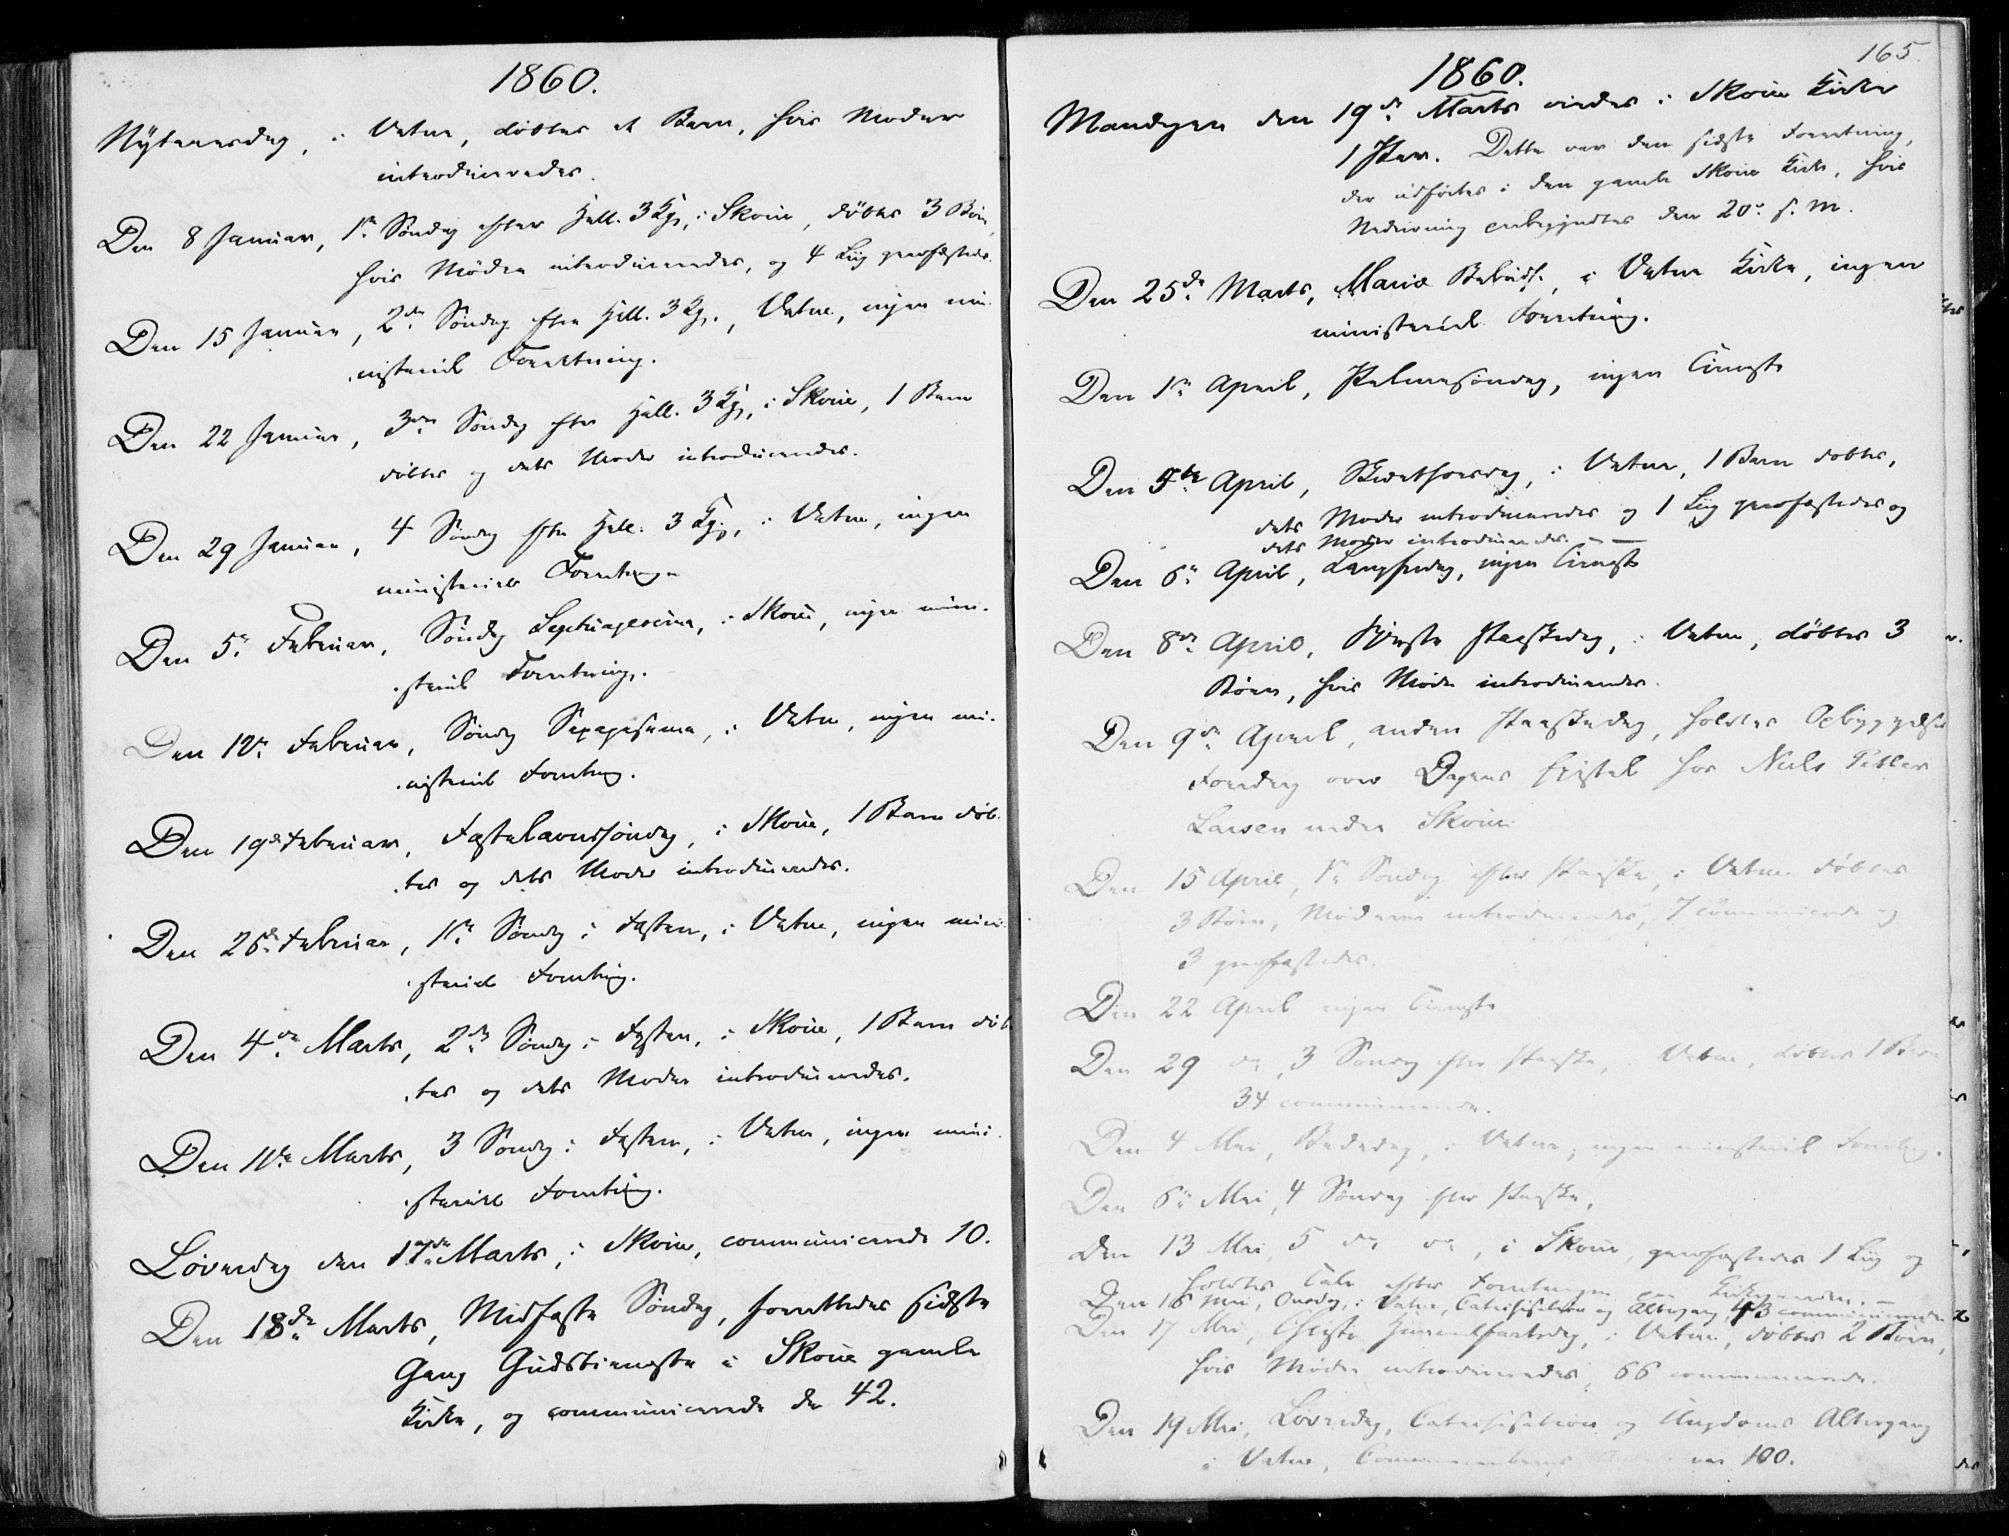 1860.
Nytaarsdag, i Vatne, döbtes et Barn, hvis Moder
introduceredes.
Den 8 Januar, 1ste Søndag efter Hell. 3 Kg., i Skoue, döbtes 3 Börn,
hvis Mödre introduceredes, og 4 Liig jordfæstedes.
Den 15 Januar, 2den Søndag efter Hell. 3 Kg., Vatne, ingen mi-
nisteriel Forretning.
Den 22 Januar, 3die Søndag efter Hell. 3 Kg., i Skoue, 1 Barn
döbtes og dets Moder introduceredes.
Den 29 Januar, 4 Søndag efter Hell. 3 Kg., i Vatne, ingen
ministeriel Forretning.
Den 5te Februar, Søndag Septuagesima, i Skoue, ingen mini-
steriel Forretning.
Den 12te Februar, Søndag Sexagesima, i Vatne, ingen mi-
nisteriel Forretning.
Den 19de Februar, Fastelavnssøndag, i Skoue, 1 Barn döb-
tes og dets Moder introduceredes.
Den 26de Februar, 1ste Søndag i Fasten, i Vatne, ingen mini-
steriel Forretning.
Den 4de Marts, 2den Søndag i Fasten, i Skoue, 1 Barn döb-
tes og dets Moder introduceredes.
Den 11te Marts, 3 Søndag i Fasten, i Vatne, ingen mini-
steriel Forretning.
Löverdag den 17de Marts, i Skoue, communicerede 10.
Den 18de Marts, Midfaste Søndag, forrettedes sidste
Gang Gudstieneste i Skoue gamle
Kirke, og communicerede der 42.
165.
1860.
Mandagen den 19de Marts viedes i Skoue Kirke
1 Par. Dette var den sidste Forretning,
der udførtes i den gamle Skoue Kirke, hvis
Nedrivning paabegyndtes den 20de s. M.
Den 25de Marts, Mariæ Bebud., i Vatne Kirke, ingen
ministeriel Forretning.
Den 1ste April, Palmesøndag, ingen Tieneste
Den 5te April, Skiærthorsdag, i Vatne, 1 Barn döbtes,
dets Moder introduceredes og 1 Liig jordfæstedes og
dets Moder introduceredes.
Den 6te April, Langfredag, ingen Tieneste
Den 8de April, Förste Paaskedag, i Vatne, döbtes 3
Börn, hvis Mödre introduceredes.
Den 9de April, anden Paaskedag, holdtes Opbyggelses
Foredrag over Dagens Epistel hos Niels Petter
Larsen nedre Skoue.
Den 15 April, 1ste Søndag efter Paaske, i Vatne döbtes
3 Börn, Mödrene introduceredes, 7 communicerede og
3 jordfæstedes.
Den 22 April ingen Tieneste
Den 29 do, 3 Søndag efter Paaske, Vatne, döbtes 1 Barn
34 communicerede.
Den 4 Mai, Bededag, i Vatne, ingen ministeriel Forretning.
Den 6te Mai, 4 Søndag efter Paaske,
Den 13 Mai, 5 do do, i Skoue, jordfæstedes 1 Liig og
holdtes Tale efter Forretningen paa Kirkegaarden. —
Den 16 Mai, Onsdag, i Vatne, Catechisation og Altergang, 43 communicerede
Den 17 Mai, Christi Himmelfartsdag, i Vatne, döbtes 2 Börn,
hvis Mödre introduceredes, 66 communicerede.
Den 19 Mai, Löverdag, Catechisation og Ungdoms Altergang
i Vatne, var 100.